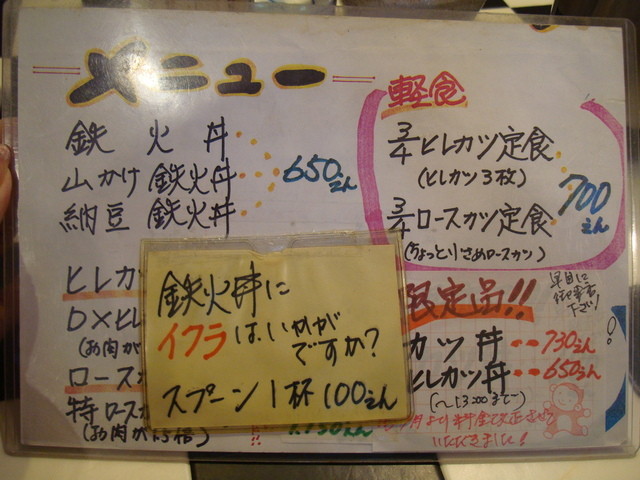 メニュー
鉄火丼
山かけ鉄火丼
納豆鉄火丼
650えん
ヒレカ
DXヒレ
(お肉が
ロース
特ロース
(お肉が1.5倍)
鉄火丼に
イクラはいかが
ですか?
スプーン1杯100えん
軽食
3/4ヒレカツ定食
(ヒレカツ3枚)
3/4ロースカツ定食
(ちょっと小さめロースカツ)
700えん
限定品!!
早目に
御注文
下さい
カツ丼‥730えん
ヒレカツ丼‥650えん
(〜13:00まで)
月より料金改正させて
いただきました!